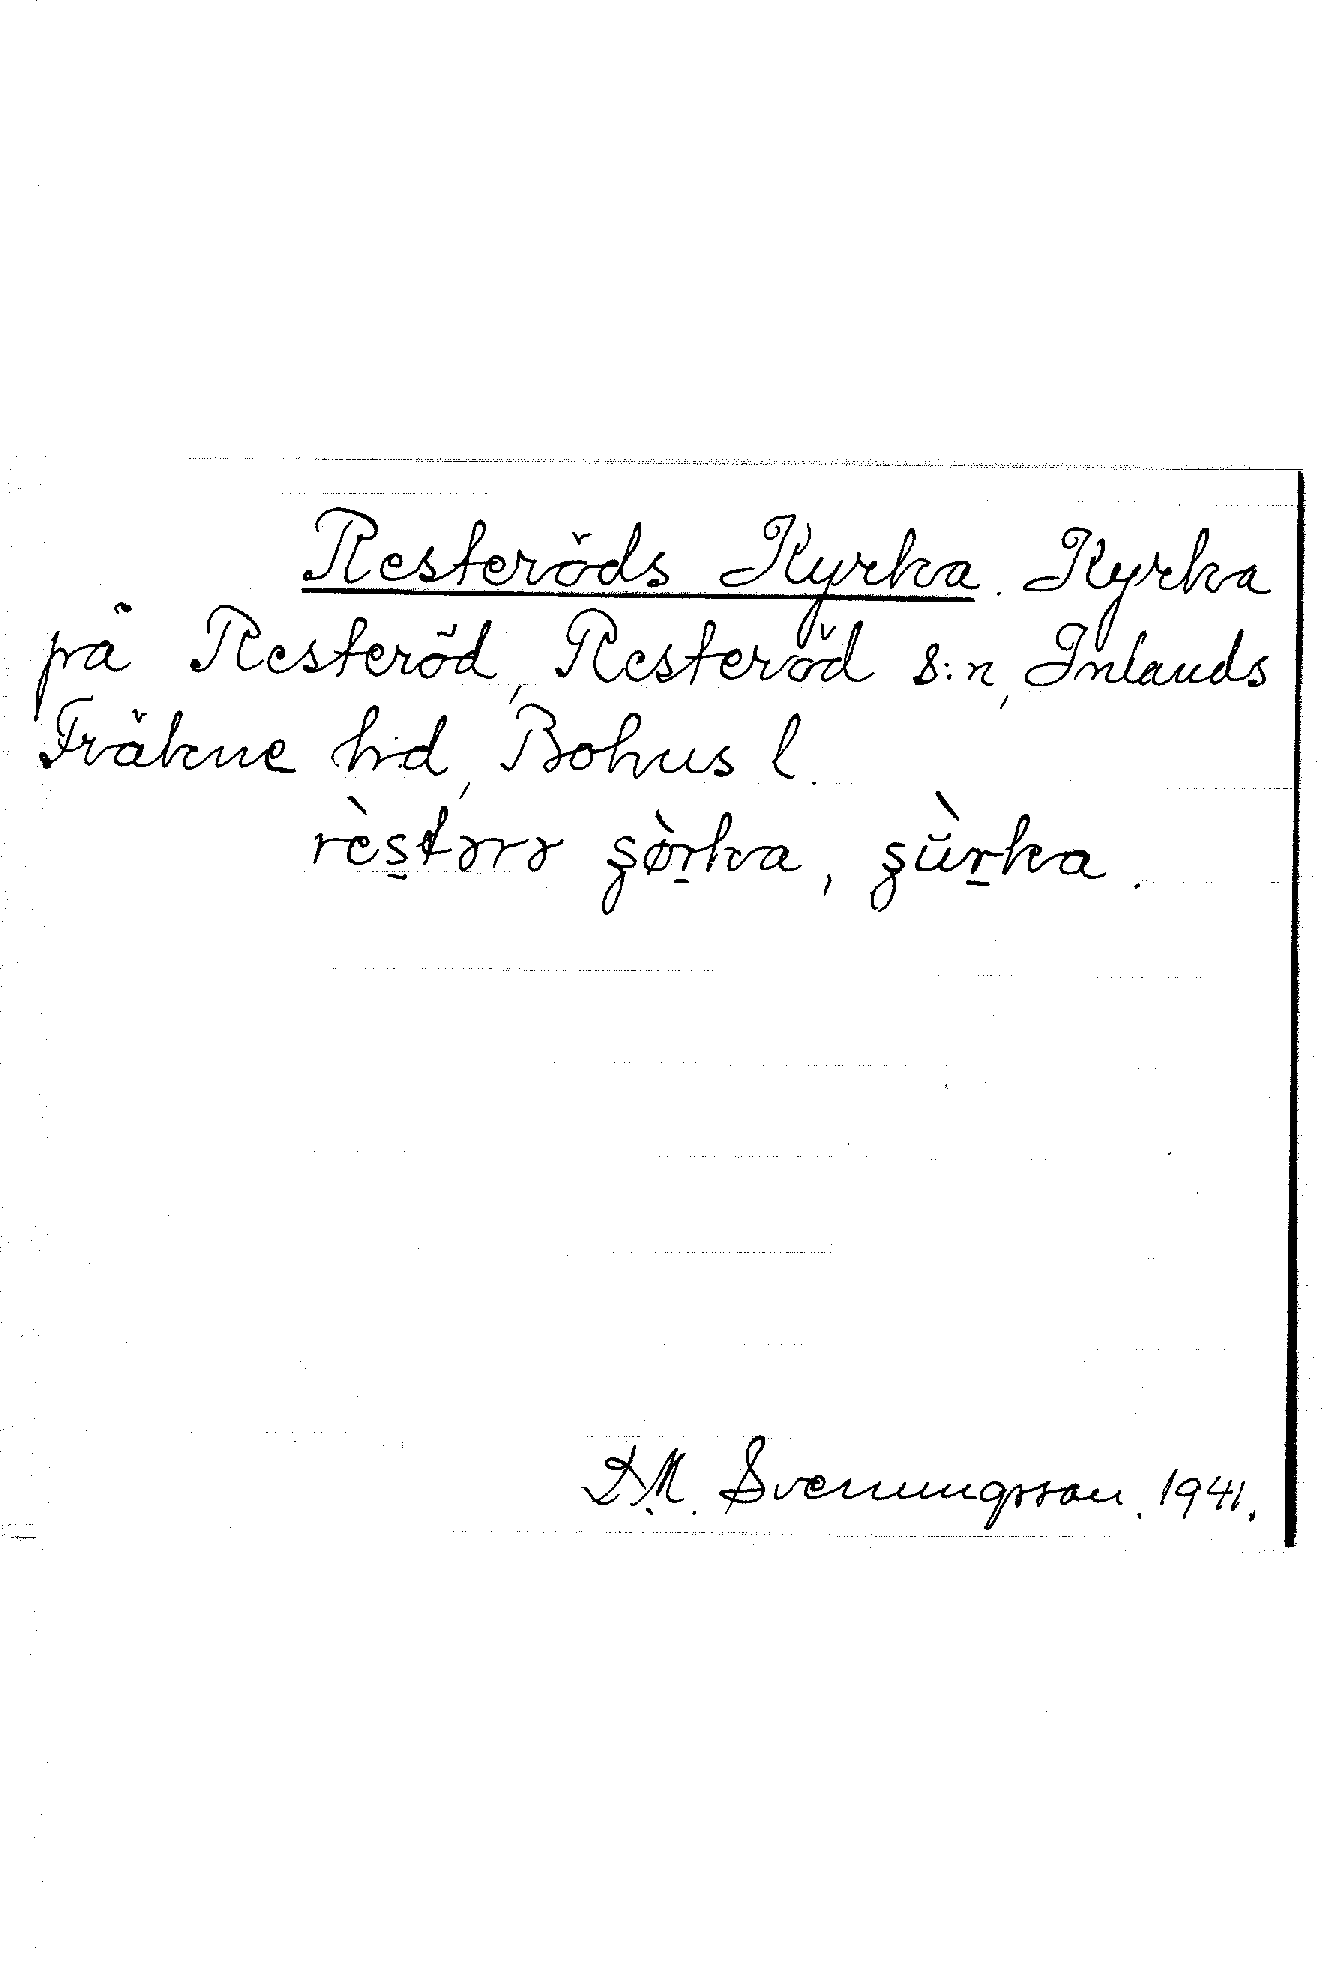 Resteröds Kyrka. Kyrka
på Resteröd, Resteröd s:n, Inlands
Fräkne hd, Bohus l.
rès̠tərə ʂø̀r̠ka, ʂùr̠ka.
D.M. Svenungsson. 1941.